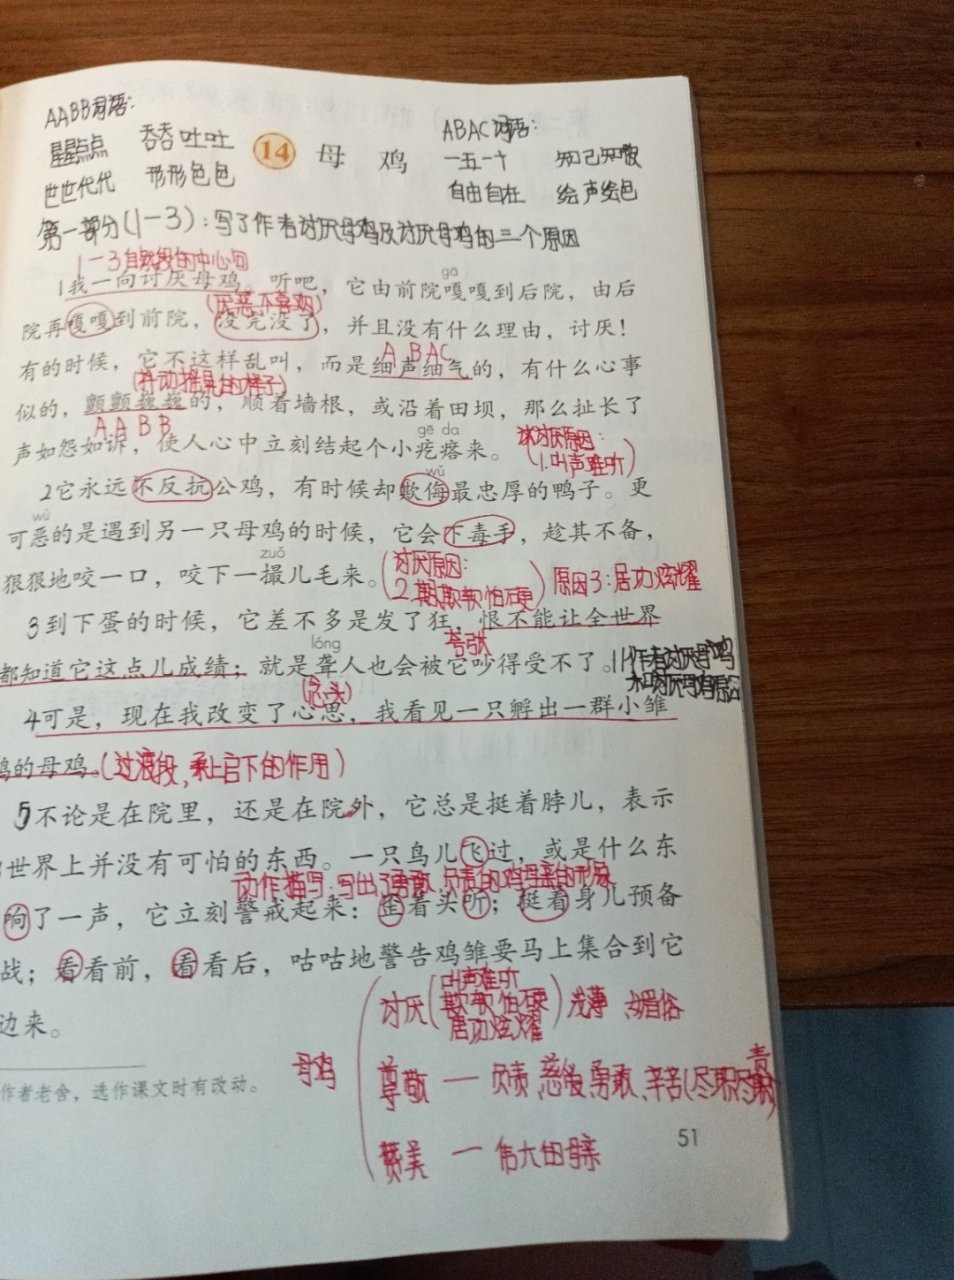 AABB词语：
星星点点 吞吞吐吐
世世代代 形形色色
14 母 鸡
ABAC词语：
一五一十 知己知彼
自由自在 绘声绘色
第一部分(1-3)：写了作者讨厌母鸡及讨厌母鸡的三个原因
1-3自然段的中心句
gā
1我一向讨厌母鸡。听吧，它由前院嘎嘎到后院，由后
(厌恶不喜欢)
院再嘎嘎到前院，没完没了，并且没有什么理由，讨厌！
A BAC
有的时候，它不这样乱叫，而是细声细气的，有什么心事
(抖动摇晃的样子)
似的，颤颤巍巍的，顺着墙根，或沿着田坝，那么扯长了
A A B B
gē da
声如怨如诉，使人心中立刻结起个小疙瘩来。
讨厌原因：
(1.叫声难听)
wǔ
2它永远不反抗公鸡，有时候却欺侮最忠厚的鸭子。更
wù
可恶的是遇到另一只母鸡的时候，它会下毒手，趁其不备，
zuǒ
狠狠地咬一口，咬下一撮儿毛来。
(讨厌原因：
2.欺软怕硬)
原因3：居功炫耀
3到下蛋的时候，它差不多是发了狂，恨不能让全世界
夸张
lóng
都知道它这点儿成绩；就是聋人也会被它吵得受不了。
作者讨厌母鸡
(念头)
4可是，现在我改变了心思，我看见一只孵出一群小雏
鸡的母鸡。(过渡段，承上启下的作用)
5不论是在院里，还是在院外，它总是挺着脖儿，表示
世界上并没有可怕的东西。一只鸟儿飞过，或是什么东
动作描写：写出了勇敢、负责的鸡母亲的形象
响了一声，它立刻警戒起来：歪着头听；挺着身儿预备
战；看看前，看看后，咕咕地警告鸡雏要马上集合到它
边来。
母鸡
讨厌(叫声难听
欺软怕硬
居功炫耀) 浅薄 媚俗
尊敬 — 负责、慈爱、勇敢、辛苦(尽职尽责)
赞美 — 伟大的母亲
作者老舍，选作课文时有改动。
51